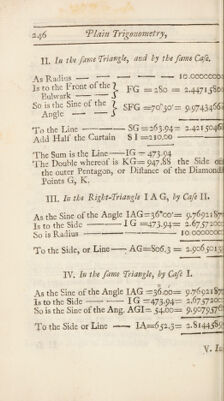 246 Plain Trigonometry,
II. In the same Triangle, and by the same Case.
As Radius — — — — — 10.0000000
Is to the Front of the Bulwark — — } FG = 280 = 2.4471580
So is the Sine of the Angle — — } SFG =70°30'= 9.9743466
To the Line — — — SG = 263.94= 2.4215046
Add Half the Curtain S I =210.00
The Sum is the Line — IG = 473.94
The Double whereof is KG= 947.88 the Side
the outer Pentagon, or Distance of the Diamond
Points G, K.
III. In the Right-Triangle I A G, by Case II.
As the Sine of the Angle IAG=36°00'= 9.7692187
Is to the Side — — I G =473.94= 2.675720
So is Radius — — — — 10.000000
To the Side, or Line — AG=806.3 = 2.9065015
IV. In the same Triangle, by Case I.
As the Sine of the Angle IAG =36.00= 9.7692187
Is to the Side — — I G =473.94= 2.675720
So is the Sine of the Ang. AGI= 54.00= 9.9079576
To the Side or Line — IA=652.3= 2.814456
V. In